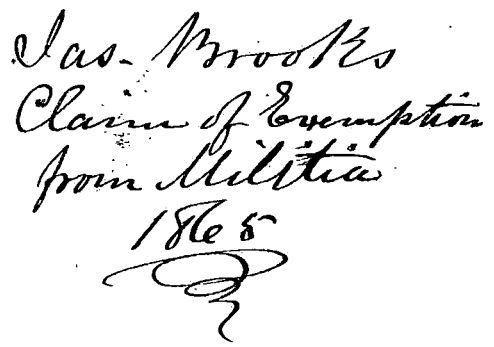 Jas. Brooks
Claim of Exemption
from Militia
1865